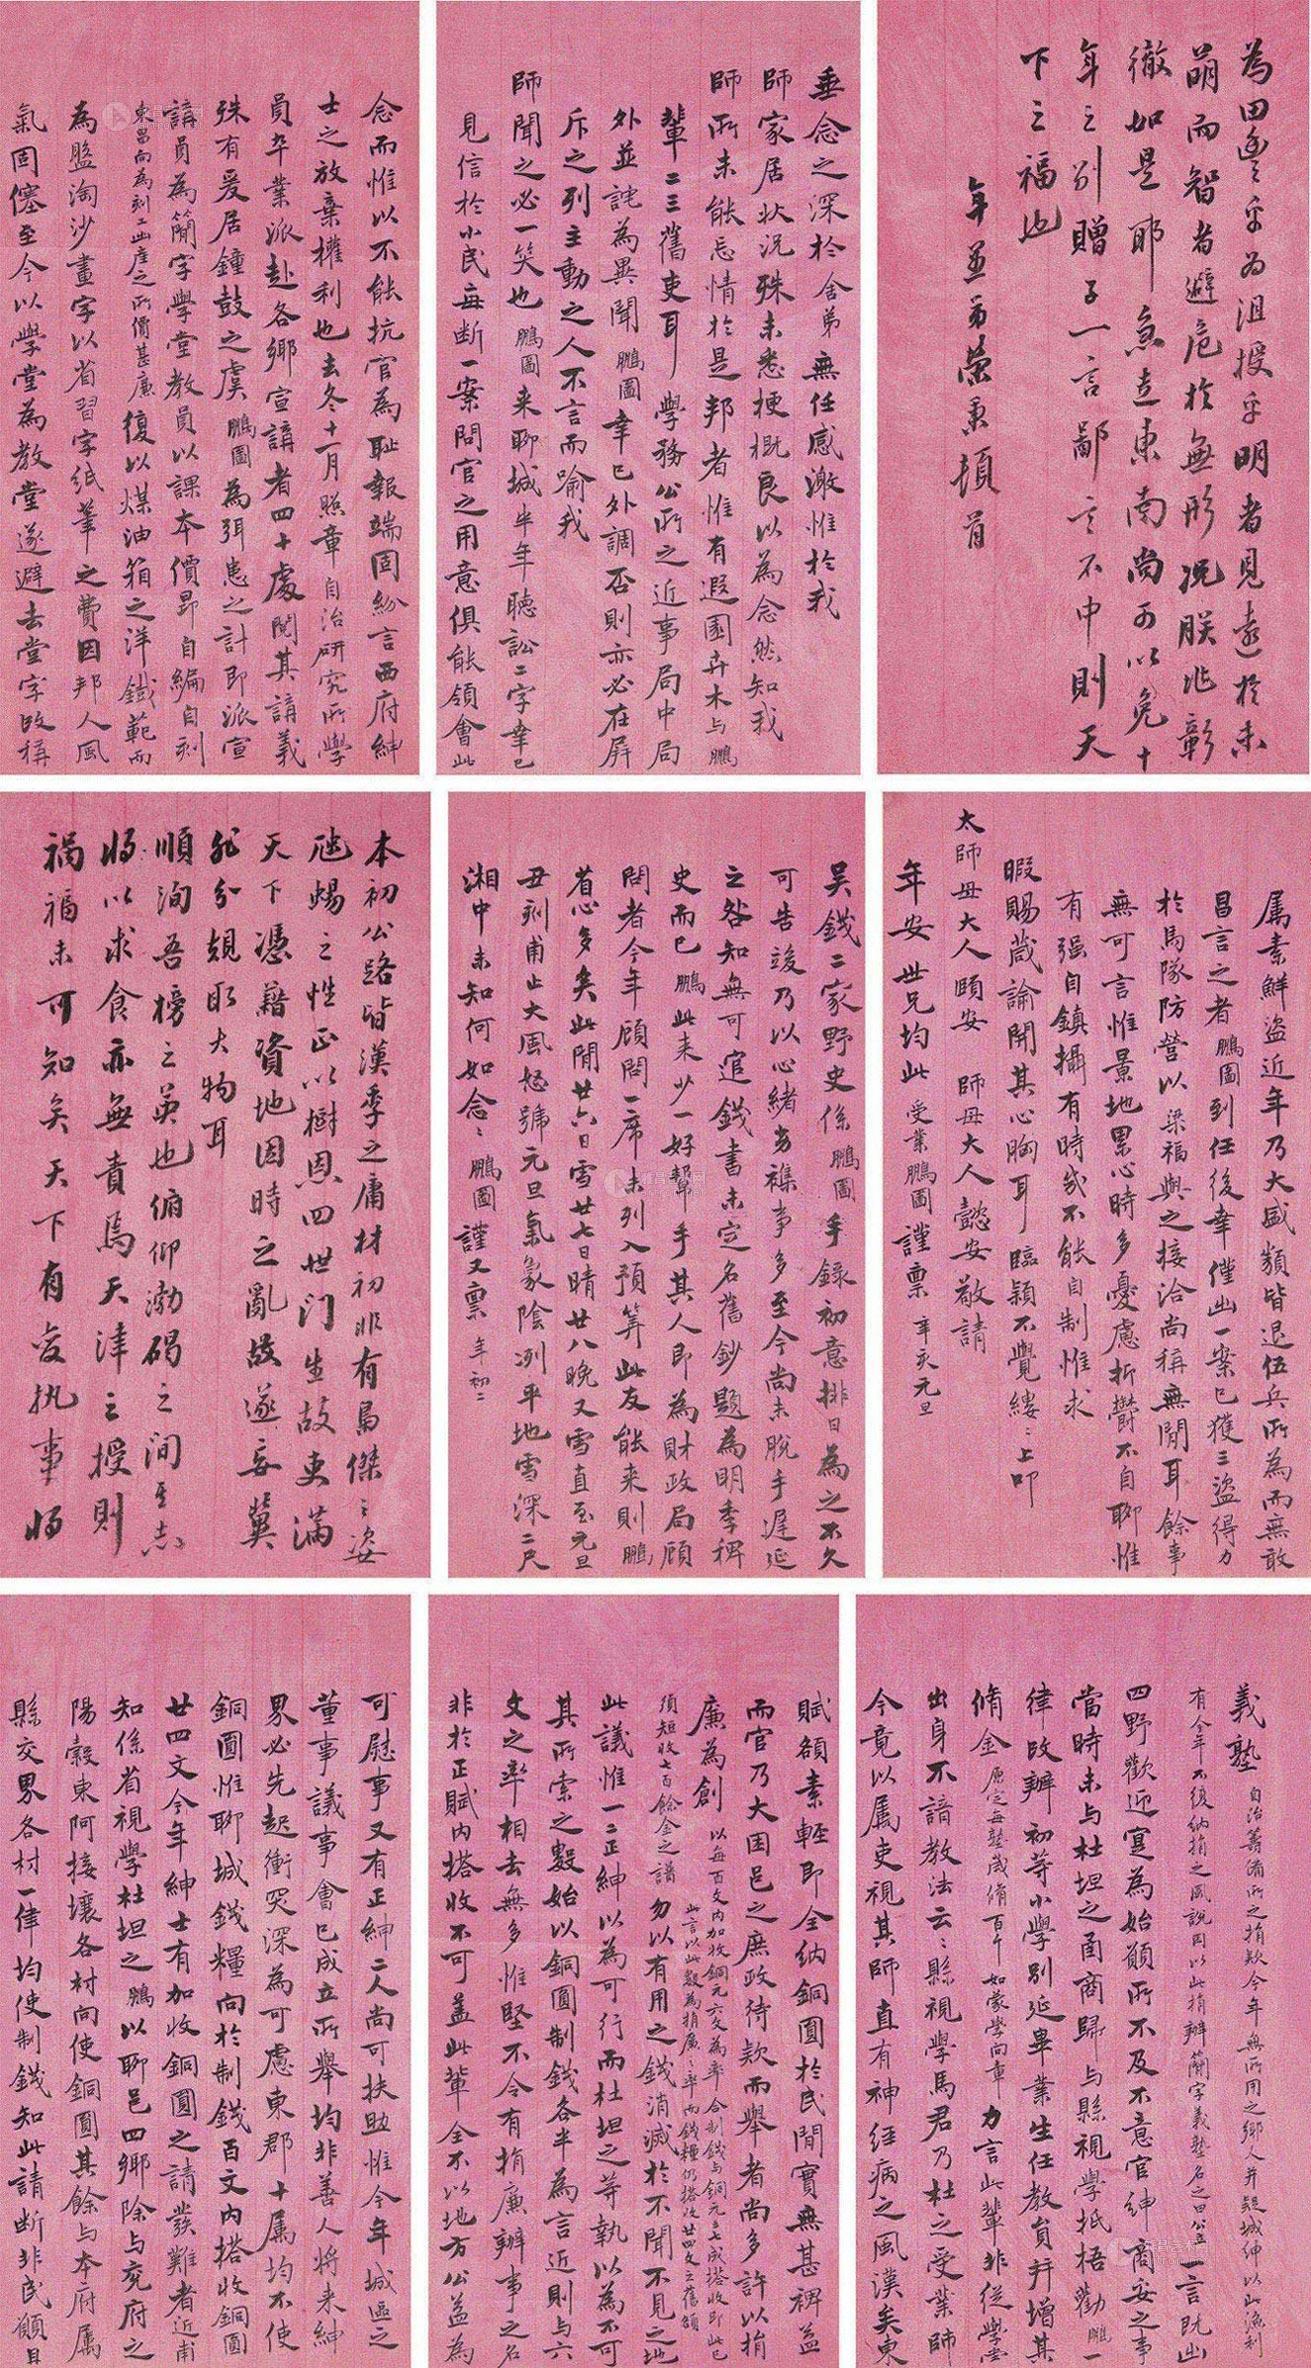 為田豊乎為沮授乎明者見遠於未
萌而智者避危於無形况朕兆彰
徹如是耶急走東南尚可以免十
年之別贈子一言鄙言不中則天
下之福也
年並弟榮束頓首
垂念之深於舍弟無任感激惟於我
師家居狀況殊未悉梗概良以為念然知我
師所未能忘情於是邦者惟有遐園卉木與鵬
輩二三舊吏耳學務公所之近事局中局
外並詫為異聞鵬圖幸已外調否則亦必在屏
斥之列主動之人不言而喻我
師聞之必一笑也鵬圖來聊城半年聽訟二字幸已
見信於小民每斷一案問官之用意俱能領會此
念而惟以不能抗官為恥報端固紛言西府紳
士之放棄權利也去冬十一月照章自治研究所學
員卒業派赴各鄉宣講者四十處閱其講義
殊有爰居鐘鼓之虞鵬圖為弭患之計即派宣
講員為簡字學堂教員以課本價昂自編自刻
東昌向為刻工出產之所價甚廉復以煤油箱之洋鐵範而
為盤淘沙畫字以省習字紙筆之費因邦人風
氣固僿至今以學堂為教堂遂避去堂字改稱
属素鮮盜近年乃大盛類皆退伍兵所為而無敢
昌言之者鵬圖到任後幸僅出一案已獲三盜得力
於馬隊防營以梁福與之接洽尚稱無間耳餘事
無可言惟景地累心時多憂慮折鬱不自聊惟
有强自鎮攝有時或不能自制惟求
暇賜箴論開其心胸耳臨穎不覺縷〻上叩
太師母大人頤安 師母大人懿安敬請
年安世兄均此 受業鵬圖謹禀 辛亥元旦
吴錢二家野史係鵬圖手錄初意排日為之不久
可告竣乃以心緒劣襍事多至今尚未脫手遲延
之咎知無可逭錢書未定名舊鈔題為明季稗
史而已鵬此來少一好幫手其人即為財政局顧
問者今年顧問一席未列入預算此友能來則鵬
省心多矣此間廿六日雪廿七日晴廿八晚又雪直至元旦
丑刻甫止大風怒號元旦氣象陰冽平地雪深二尺
湘中未知何如念〻鵬圖謹又禀 年初二
本初公路皆漢季之庸材初非有烏傑之姿
虺蜴之性正以樹恩四世门生故吏滿
天下憑藉資地因時之亂故遂妄冀
非分覬取大物耳
順洵吾榜之英也俯仰渤碣之间其志
将以求食亦無責焉天津之授則
禍福未可知矣天下有变执事将
義塾 自治籌備所之捐欵今年無所用之鄉人并疑城紳以此漁利
有今年不復納捐之風說因以此捐辦簡字義塾名之曰公立一言既出
四野歡迎寔為始願所不及不意官紳商妥之事
當時未與杜坦之函商歸與縣視學抵梧勸鵬一
律改辦初等小學別延畢業生任教員并增其
脩金 原定每塾歲脩百千如蒙學向章力言此輩非從學堂
出身不諳教法云〻縣視學馬君乃杜之受業師
今竟以属吏視其師直有神經病之風漢矣東
賦額素輕即全納銅圓於民間實無甚裨益
而官乃大困邑之庶政待欵而舉者尚多許以捐
廉為創 以每百文内加收銅元六文為率合制錢與銅元三七成搭收即此已
須短收七百餘金之譜 此言以此數為捐廉之率而錢糧仍搭收廿四文之舊額勿以有用之錢消滅於不聞不見之地
此議惟一二正紳以為可行而杜坦之等執以為不可
其所索之數始以銅圓制錢各半為言近則與六
文之率相去無多惟堅不令有捐廉辦事之名
非於正賦内搭收不可蓋此輩全不以地方公益為
可慰事又有正紳二人尚可扶助惟今年城區之
董事議事會已成立所舉均非善人將來紳
界必先起衝突深為可慮東郡十属均不使
銅圓惟聊城錢糧向於制錢百文内搭收銅圓
廿四文今年紳士有加收銅圓之請發難者近甫
知係省視學杜坦之鵬以聊邑四鄉除與兖府之
陽穀東阿接壤各村向使銅圓其餘與本府属
縣交界各村一律均使制錢知此請斷非民願且